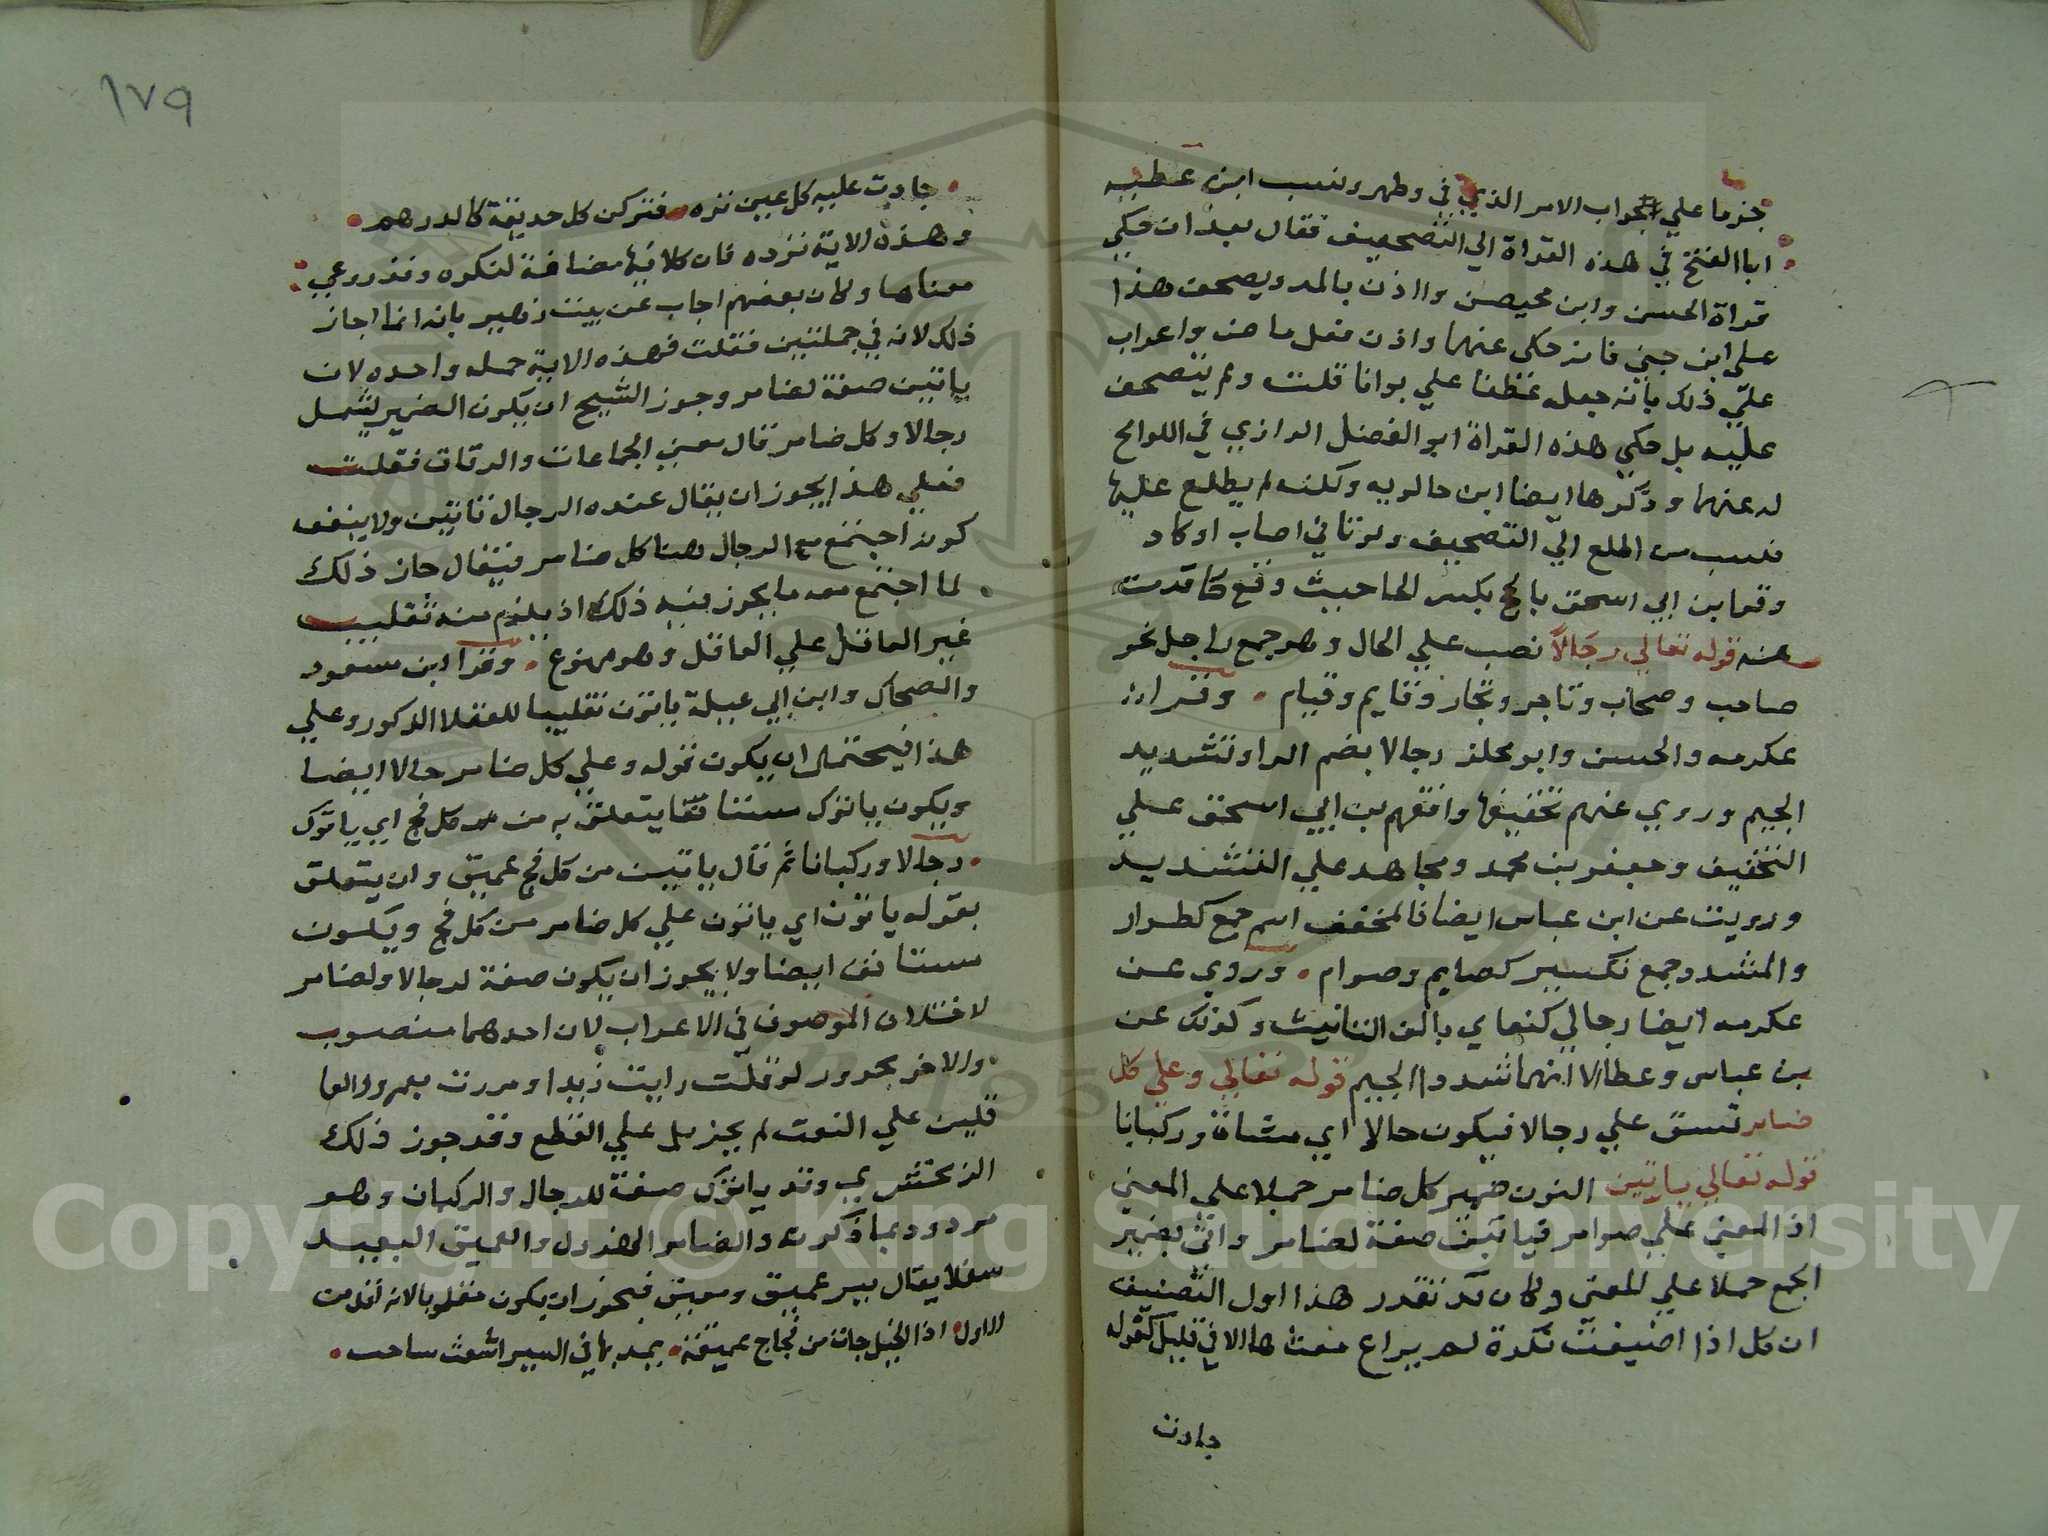 جزما علي جواب الامر الذي في وطهر ونسب ابن عطيه
ابا الفتح في هذه القراة الي التصحيف فقال بعد ان حكي
قراة الحسن وابن محيصن وااذن بالمد ويصحف هذا
علي ابن جني فانه حكي عنهما واذن فعل ماض واعراب
علي ذلك بانه جعله عطفا علي بوانا قلت ولم يتصحف
عليه بل حكي هذه القراة ابو الفضل الرازي في اللوامح
له عنهما وذكرها ايضا ابن خالويه ولكنه لم يطلع عليها
فنسب من اطلع الي التصحيف ولو تاني اصاب او كاد
وقرا بن ابي اسحق بالحج بكسر الحا حيث وقع كما قدمت
عنه قوله تعالي رجالاً نصب علي الحال وهو جمع راجل نحو
صاحب وصحاب وتاجر وتجار وقايم وقيام • وقرا
عكرمه والحسن وابو مجلز رجالا بضم الرا وتشديد
الجيم وروي عنهم تخفيفها وافقهم بن ابي اسحق علي
التخفيف وجعفر بن محمد ومجاهد علي التشديد
ورويت عن ابن عباس ايضا فالمخفف اسم جمع كطوار
والمشدد جمع تكسير كصايم وصوام • وروي عن
عكرمه ايضا رجالي كنعامي بالف التانيث وكذلك عن
بن عباس وعطا الا انهما شددا الجيم قوله تعالي وعلي كل
ضامر نسق علي رجالا فيكون حالا اي مشاة وركبانا
قوله تعالي ياتين النون ضمير كل ضامر حملا علي المعني
اذ المعني علي صوامر فياتين صفة لضامر واتي بضمير
الجمع حملا علي المعني وكان قد تقدر هذا اول التصنيف
ان كل اذا اضيفت نكرة لم يراع معناها الا في قليل كقوله
جادت
١٧٩
• جادت عليه كل عين ثره • فتركن كل حديقة كالدرهم •
وهذه الاية ترده فان كلا فيها مضافة لنكره وقد روعي
معناها وكان بعضهم اجاب عن بيت زهير بانه انما اجاز
ذلك لانه في جملتين فقلت فهذه الاية جمله واحده لان
ياتين صفة لضامر وجوز الشيخ ان يكون الضمير يشمل
رجالا وكل ضامر قال معني الجماعات والرفاق فقلت
فعلي هذا يجوز ان يقال عنده الرجال تاتين ولا ينفعه
كونه اجتمع مع الرجال هنا كل ضامر فيقال جاز ذلك
لما اجتمع معه ما يجوز فيه ذلك اذ يلزم منه تغليب
غير العاقل علي العاقل وهو ممنوع • وقرا ابن مسعود
والضحاك وابن ابي عبلة ياتون تغليبا للعقلا الذكور وعلي
هذا فيحتمل ان يكون قوله وعلي كل ضامر حالا ايضا
ويكون ياتوك مستانفا يتعلق به من كل فج اي ياتوك
• رجالا وركبانا ثم قال ياتين من كل فج عميق وان يتعلق
بقوله ياتون اي ياتون علي كل ضامر من كل فج ويكون
مستانف ايضا ولا يجوز ان يكون صفة لرجالا ولضامر
لاختلاف الموصوف في الاعراب لان احدهما منصوب
والاخر مجرور لو قلت رايت زيدا ومررت بعمرو العا
قلين علي النعت لم يجز بل علي القطع وقد جوز ذلك
الزمخشري وقد ياتوك صفة للرجال والركبان وهو
مردود بما ذكرت والضامر المهزول والعميق البعيد
سفلا يقال بير عميق ومعيق فيجوز ان يكون مقلوبا لانه اقل من
الاول اذا الخيل جات من فجاج عميقة • يمد بها في السير اشعث شاحب •
Copyright © King Saud University
1957